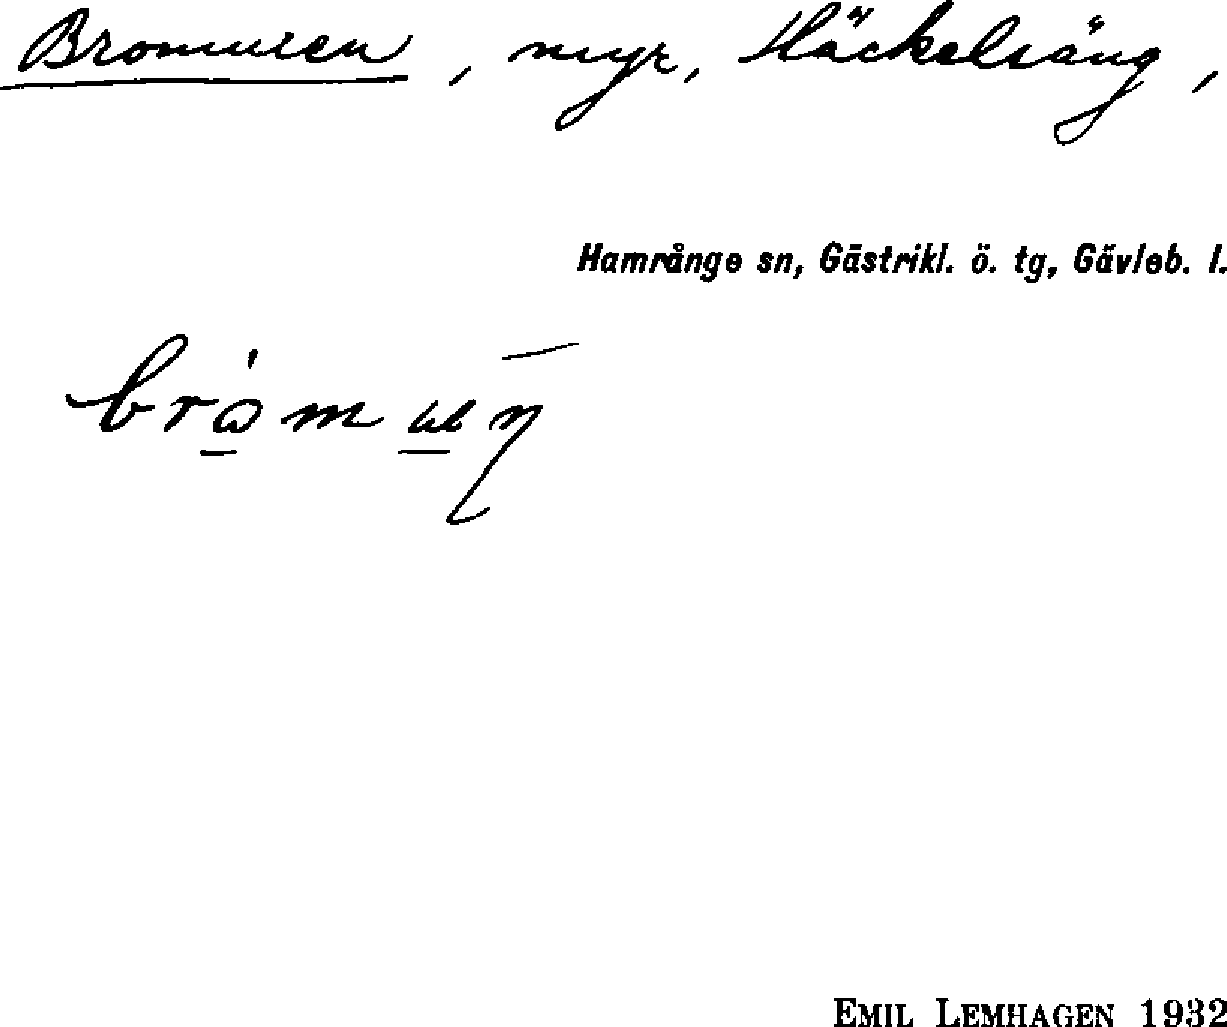 Bromuren, myr, Häckelsäng,
Hamrånge sn, Gästrikl. ö. tg, Gävleb. l.
brὼ̲muɳ̄
EMIL LEMHAGEN 1932